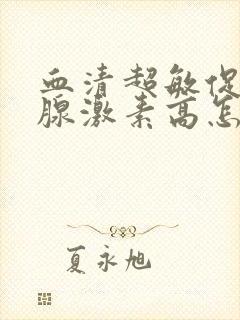 血清超敏促
腺激素高怎
夏永旭